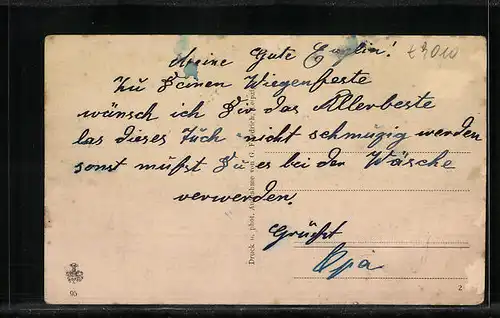 Meine Gute Enkelin!
Zu Deinen Wiegenfeste
wünsch ich Dir das Allerbeste
las dieses Tuch nicht schmuzig werden
sonst mußt Du es bei der Wäsche
verwerden.
Grüßt
Opa
Druck u. phot. Aufnahme von
95
2